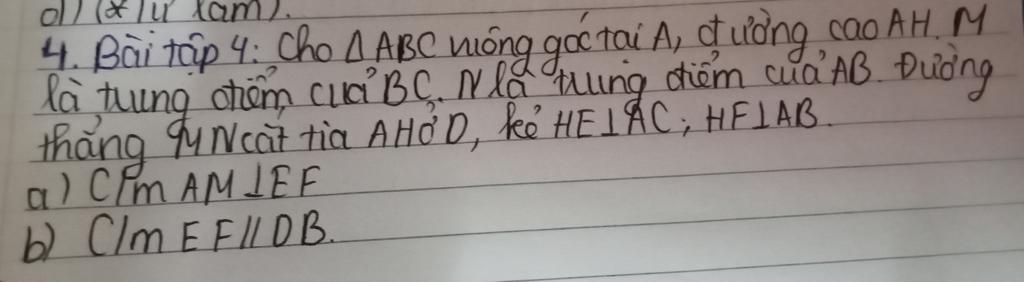 d) (* Tự làm).
4. Bài tập 4: Cho Δ ABC vuông góc tại A, đường cao AH. M
là trung điểm của BC. N là trung điểm của AB. Đường
thẳng MN cắt tia AH ở D, kẻ HE⊥AC; HF⊥AB.
a) C/m AM⊥EF
b) C/m EF//DB.